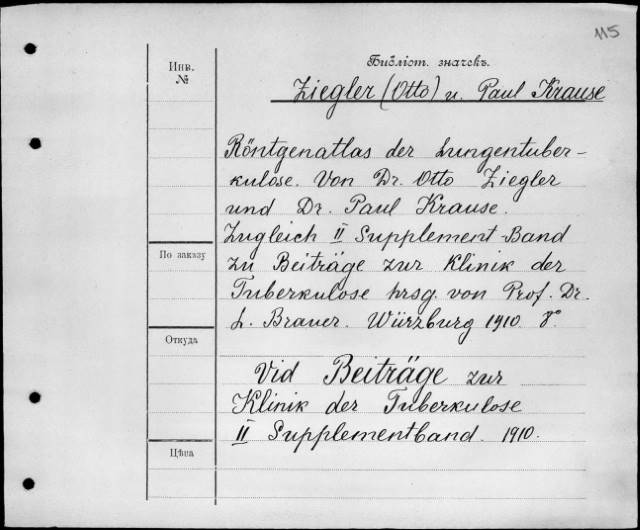 115
Библіот. значекъ.
Инв.
№
Ziegler (Otto) u. Paul Krause
Röntgenatlas der Lungentuber-
kulose. Von Dr. Otto Ziegler
und Dr. Paul Krause.
Zugleich II Supplement-Band
По заказу
zu Beiträge zur Klinik der
Tuberkulose hrsg. von Prof. Dr.
L. Brauer. Würzburg 1910. 8°.
Откуда
Vid Beiträge zur
Klinik der Tuberkulose
II Supplementband. 1910.
Цѣна